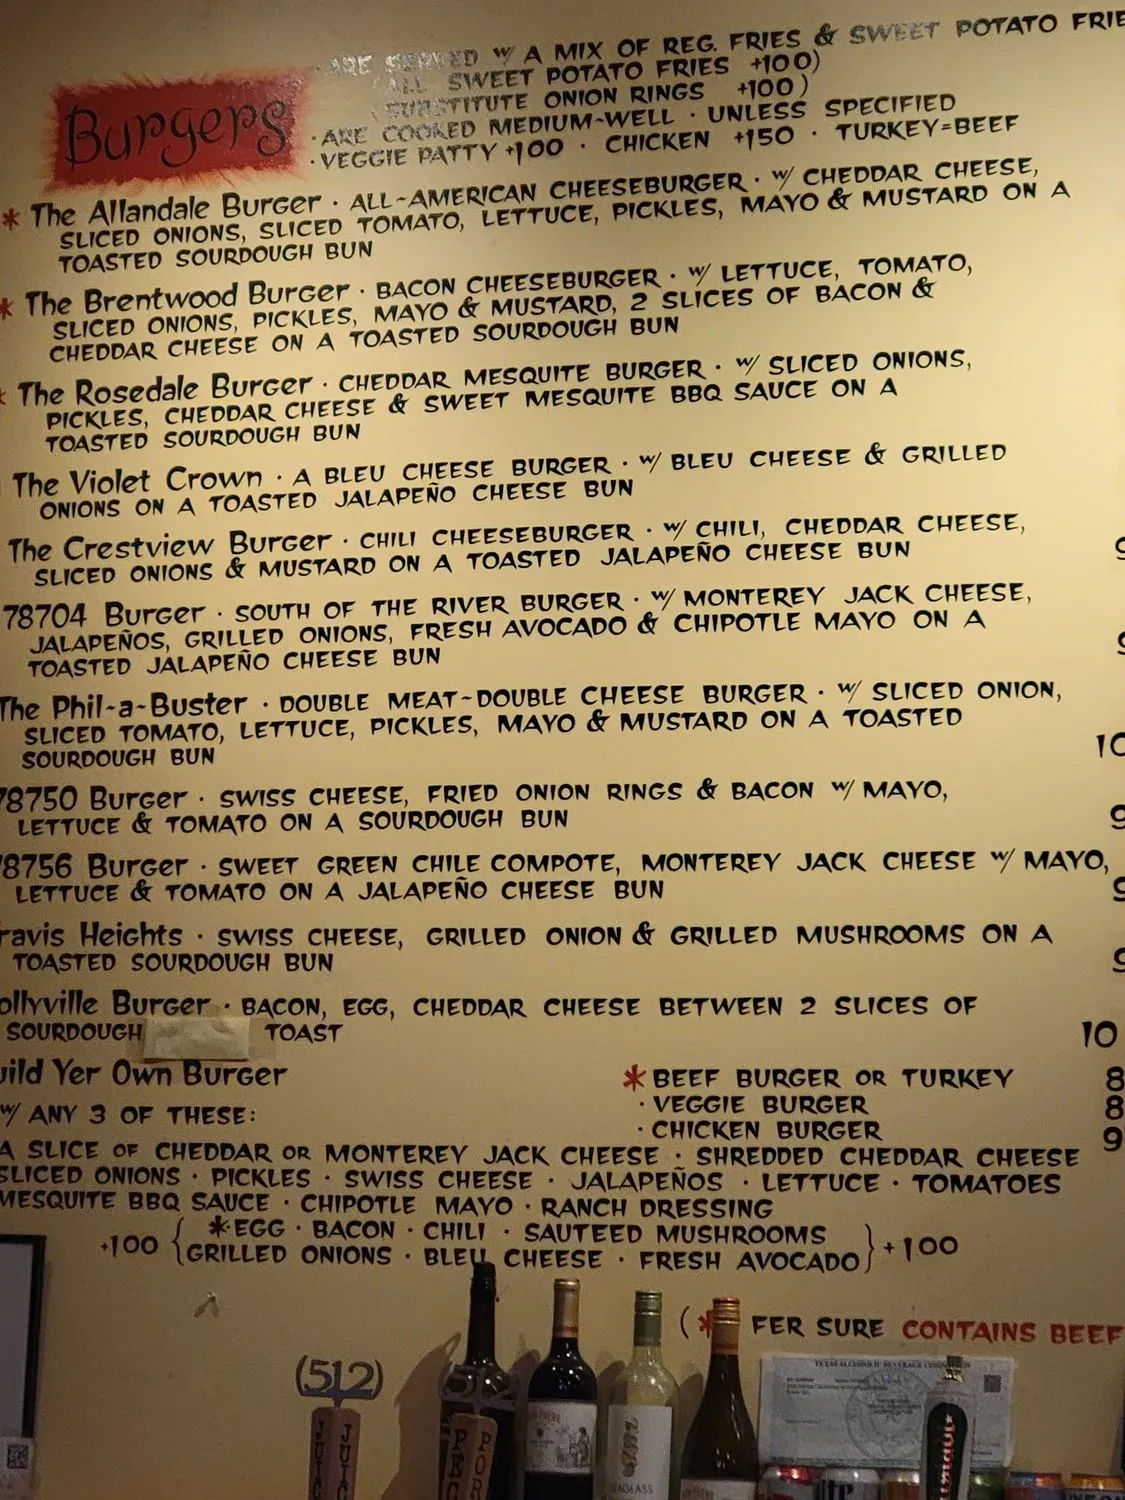 Burgers
· ARE SERVED w/ A MIX OF REG. FRIES & SWEET POTATO FRIE
(ALL SWEET POTATO FRIES +100)
(SUBSTITUTE ONION RINGS +100)
· ARE COOKED MEDIUM-WELL · UNLESS SPECIFIED
· VEGGIE PATTY +100 · CHICKEN +150 · TURKEY=BEEF
* The Allandale Burger · ALL-AMERICAN CHEESEBURGER · w/ CHEDDAR CHEESE,
SLICED ONIONS, SLICED TOMATO, LETTUCE, PICKLES, MAYO & MUSTARD ON A
TOASTED SOURDOUGH BUN
* The Brentwood Burger · BACON CHEESEBURGER · w/ LETTUCE, TOMATO,
SLICED ONIONS, PICKLES, MAYO & MUSTARD, 2 SLICES OF BACON &
CHEDDAR CHEESE ON A TOASTED SOURDOUGH BUN
* The Rosedale Burger · CHEDDAR MESQUITE BURGER · w/ SLICED ONIONS,
PICKLES, CHEDDAR CHEESE & SWEET MESQUITE BBQ SAUCE ON A
TOASTED SOURDOUGH BUN
The Violet Crown · A BLEU CHEESE BURGER · w/ BLEU CHEESE & GRILLED
ONIONS ON A TOASTED JALAPEÑO CHEESE BUN
The Crestview Burger · CHILI CHEESEBURGER · w/ CHILI, CHEDDAR CHEESE,
SLICED ONIONS & MUSTARD ON A TOASTED JALAPEÑO CHEESE BUN 9
78704 Burger · SOUTH OF THE RIVER BURGER · w/ MONTEREY JACK CHEESE,
JALAPEÑOS, GRILLED ONIONS, FRESH AVOCADO & CHIPOTLE MAYO ON A 9
TOASTED JALAPEÑO CHEESE BUN
The Phil-a-Buster · DOUBLE MEAT-DOUBLE CHEESE BURGER · w/ SLICED ONION,
SLICED TOMATO, LETTUCE, PICKLES, MAYO & MUSTARD ON A TOASTED
SOURDOUGH BUN 10
78750 Burger · SWISS CHEESE, FRIED ONION RINGS & BACON w/ MAYO,
LETTUCE & TOMATO ON A SOURDOUGH BUN 9
78756 Burger · SWEET GREEN CHILE COMPOTE, MONTEREY JACK CHEESE w/ MAYO,
LETTUCE & TOMATO ON A JALAPEÑO CHEESE BUN 9
ravis Heights · SWISS CHEESE, GRILLED ONION & GRILLED MUSHROOMS ON A
TOASTED SOURDOUGH BUN 9
ollyville Burger · BACON, EGG, CHEDDAR CHEESE BETWEEN 2 SLICES OF
SOURDOUGH TOAST 10
uild Yer Own Burger
* BEEF BURGER OR TURKEY 8
· VEGGIE BURGER 8
· CHICKEN BURGER 9
w/ ANY 3 OF THESE:
A SLICE OF CHEDDAR OR MONTEREY JACK CHEESE · SHREDDED CHEDDAR CHEESE
SLICED ONIONS · PICKLES · SWISS CHEESE · JALAPEÑOS · LETTUCE · TOMATOES
MESQUITE BBQ SAUCE · CHIPOTLE MAYO · RANCH DRESSING
+100 { *EGG · BACON · CHILI · SAUTEED MUSHROOMS
GRILLED ONIONS · BLEU CHEESE · FRESH AVOCADO } +100
(* FER SURE CONTAINS BEEF
(512)